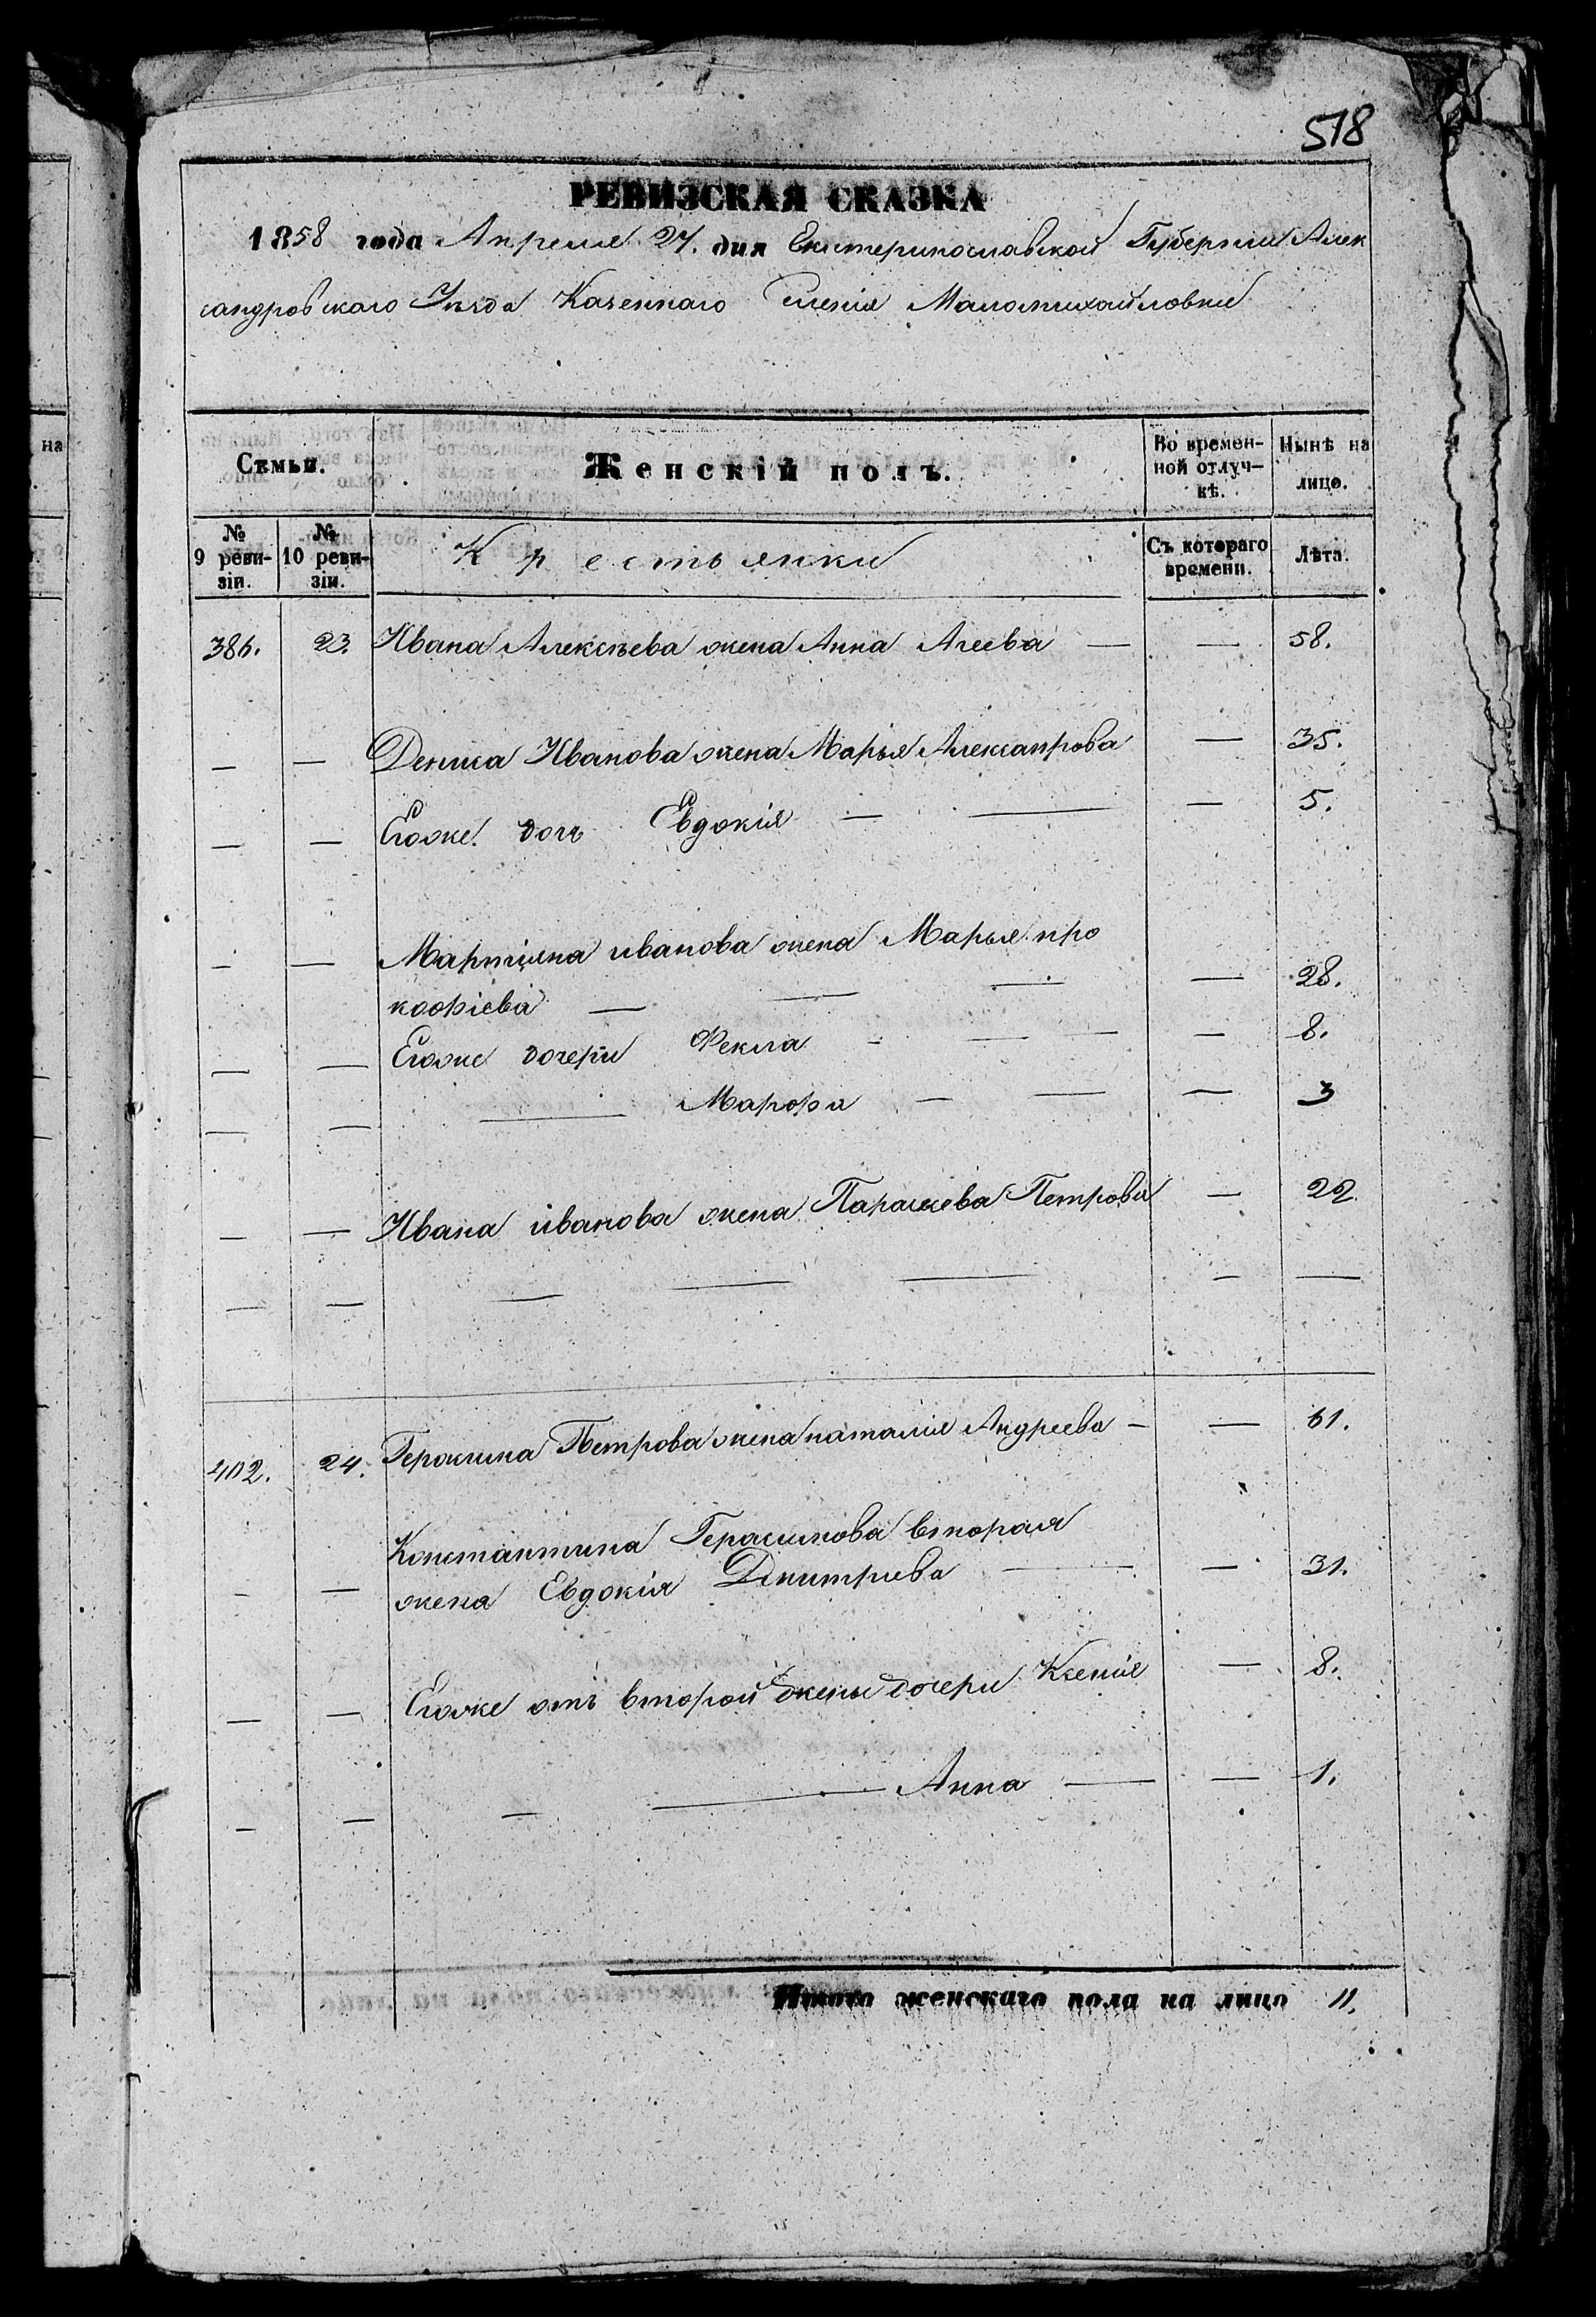 518
РЕВИЗСКАЯ СКАЗКА
1858 года Апреля 27. дня Екатеринославской Губернии Алек
сандровскаго Уѣзда Казеннаго Селенія Маломихайловки
Семьи. Женскій полъ. Во времен- Нынѣ на
ной отлуч- лицо.
кѣ.
№ № Крестьянки Съ котораго Лѣта.
9 реви- 10 реви- времени.
зіи. зіи.
386. 23. Ивана Алексѣева жена Анна Агеева — — 58.
— — Дениса Иванова жена Марья Алексанрова — 35.
— — Егоже дочь Евдокія — — — 5.
— — Мартіяна иванова жена Марья про
кофіева — — — — 28.
— — Егоже дочери Фекла - — — 8.
— — — Марфа — — — 3
— — Ивана иванова жена Параскева Петрова — 22
— — — — — — —
402. 24. Герасима Петрова жена наталия Андреева — — 61.
Константина Герасимова вторая
— — жена Евдокія Дмитриева — — 31.
— — Егоже отъ второй жены дочери Ксенія — 8.
— — — — Анна — — 1.
Итого женскаго пола на лицо 11.
на